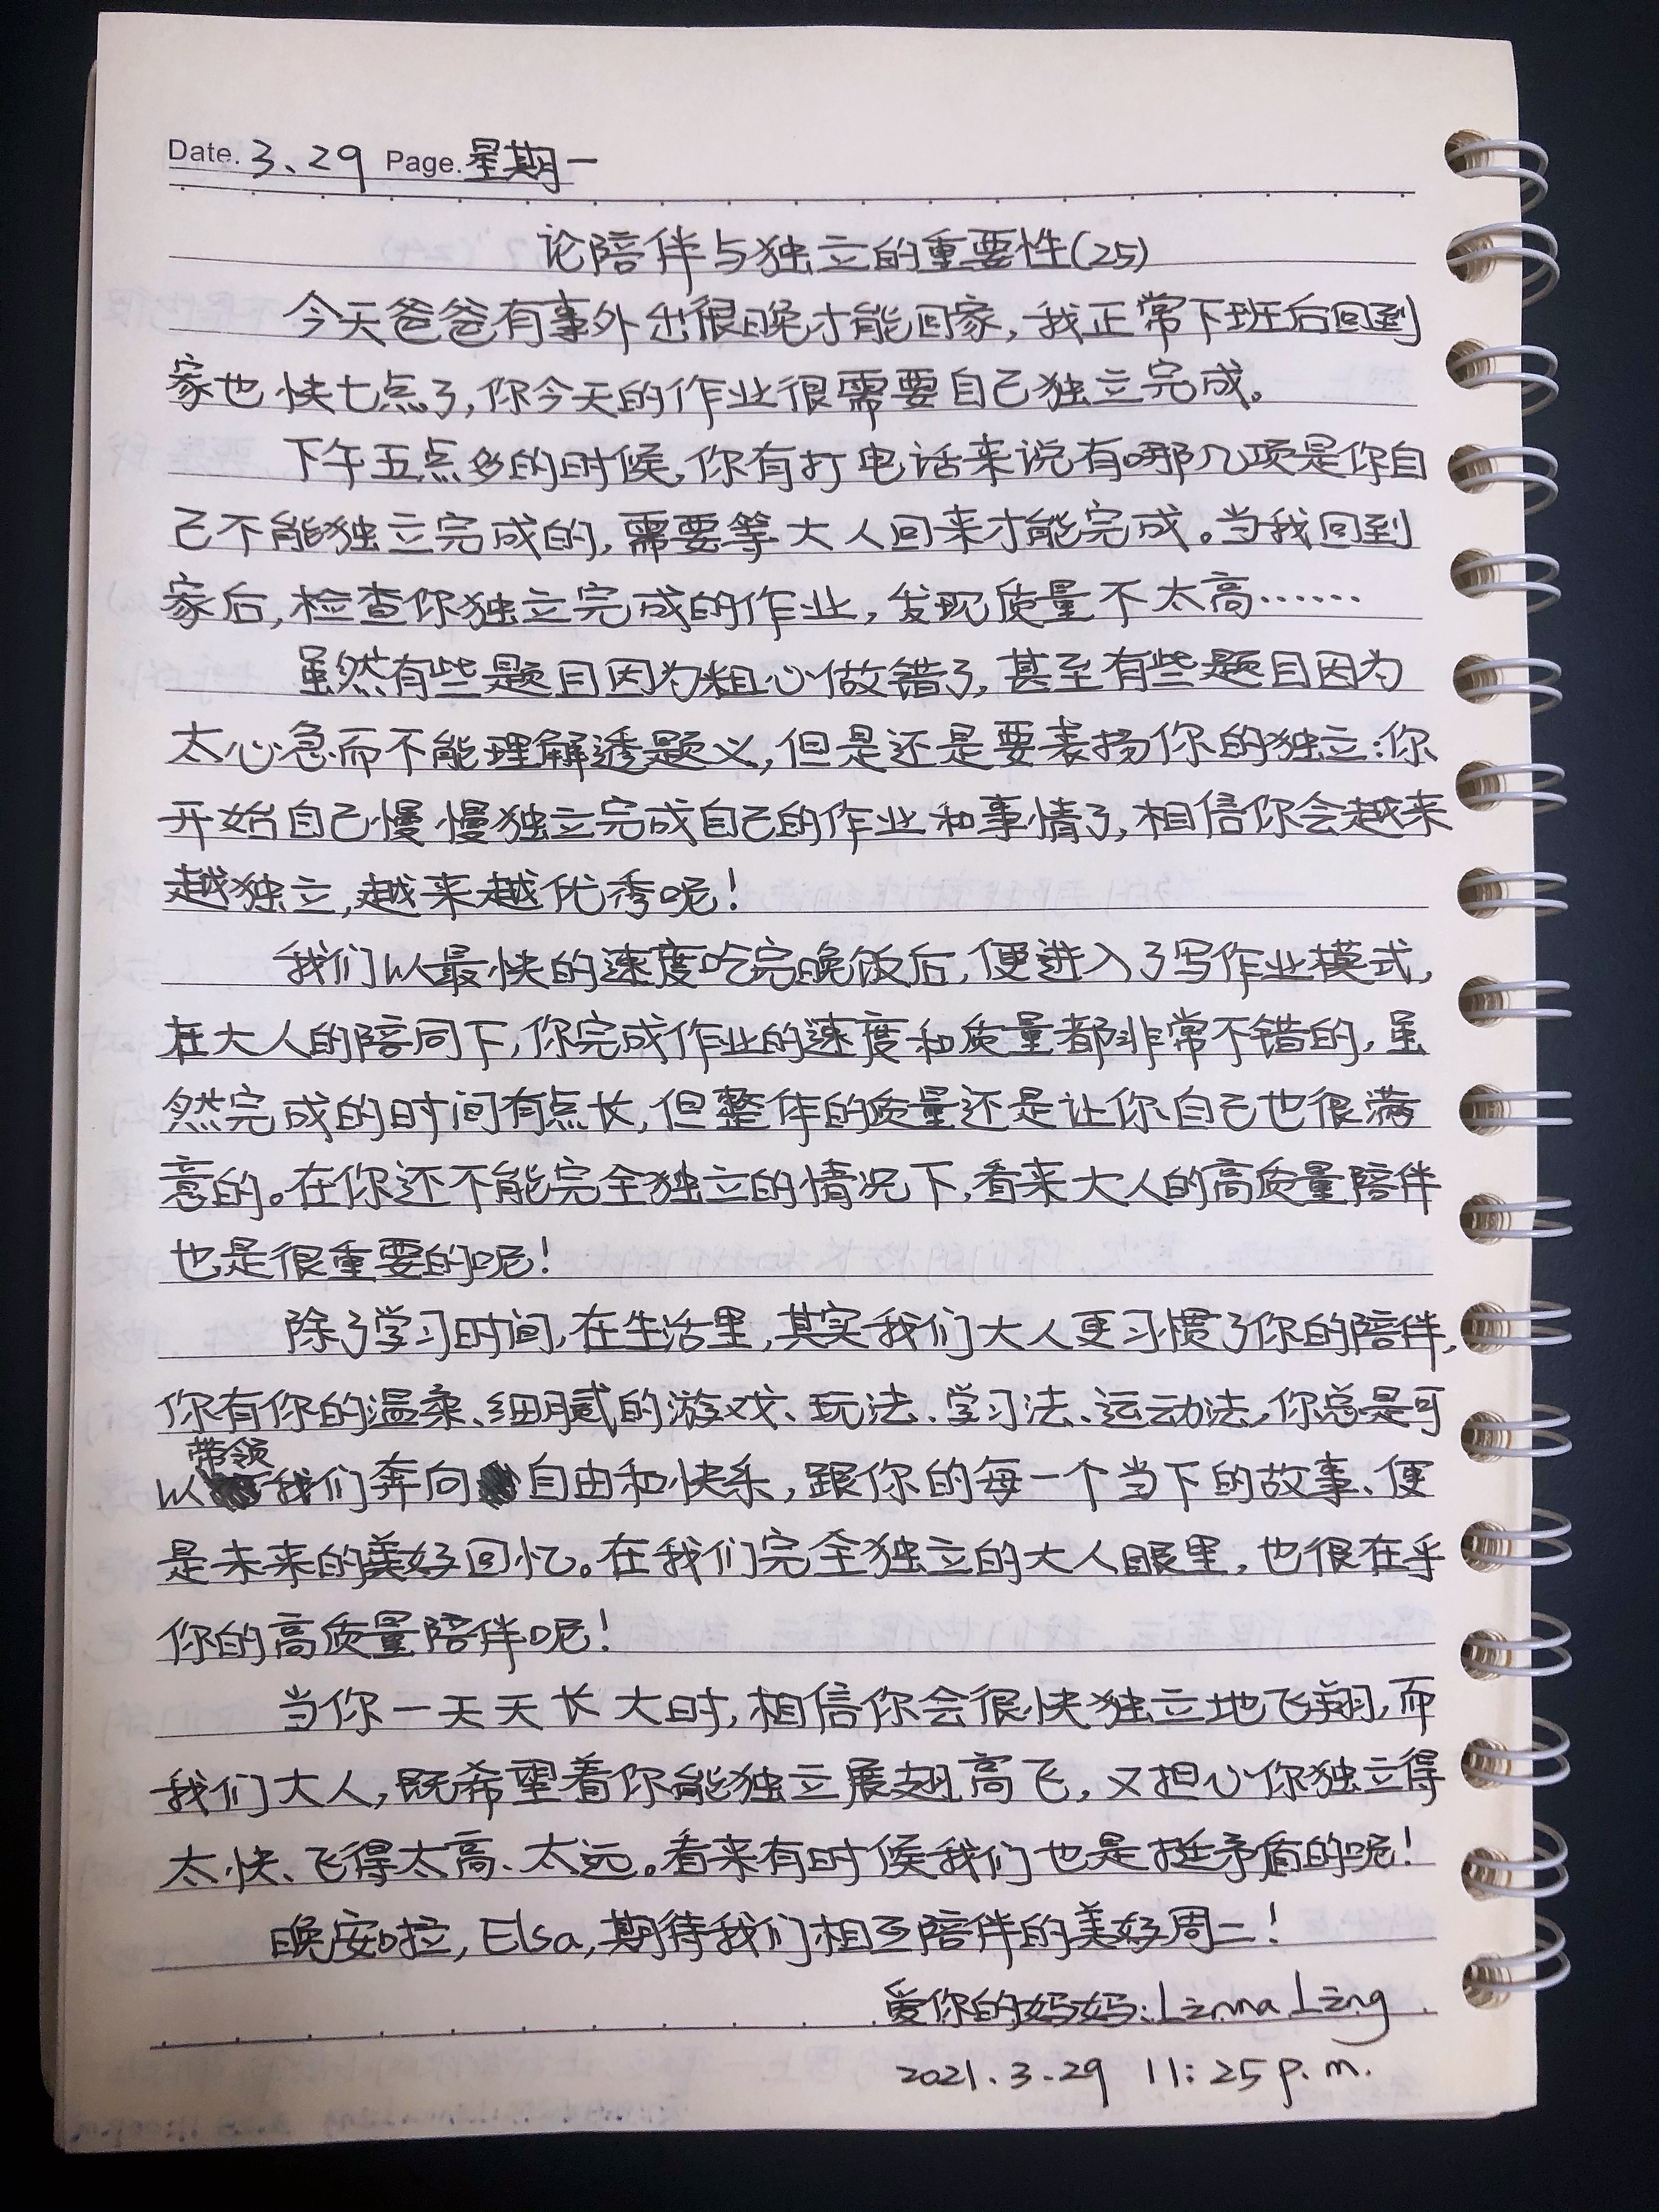 Date. 3、29 Page. 星期一
论陪伴与独立的重要性(25)
今天爸爸有事外出很晚才能回家，我正常下班后回到
家也快七点了，你今天的作业很需要自己独立完成。
下午五点多的时候，你有打电话来说有哪几项是你自
己不能独立完成的，需要等大人回来才能完成。当我回到
家后，检查你独立完成的作业，发现质量不太高……
虽然有些题目因为粗心做错了，甚至有些题目因为
太心急而不能理解透题义，但是还是要表扬你的独立：你
开始自己慢慢独立完成自己的作业和事情了，相信你会越来
越独立，越来越优秀呢！
我们以最快的速度吃完晚饭后，便进入了写作业模式，
在大人的陪同下，你完成作业的速度和质量都非常不错的，虽
然完成的时间有点长，但整体的质量还是让你自己也很满
意的。在你还不能完全独立的情况下，看来大人的高质量陪伴
也是很重要的呢！
除了学习时间，在生活里，其实我们大人更习惯了你的陪伴，
你有你的温柔、细腻的游戏、玩法、学习法、运动法，你总是可
以带领我们奔向自由和快乐，跟你的每一个当下的故事、便
是未来的美好回忆。在我们完全独立的大人眼里，也很在乎
你的高质量陪伴呢！
当你一天天长大时，相信你会很快独立地飞翔，而
我们大人，既希望着你能独立展翅高飞，又担心你独立得
太快、飞得太高、太远。看来有时候我们也是挺矛盾的呢！
晚安啦，Elsa，期待我们相互陪伴的美好周二！
爱你的妈妈：Linna Ling
2021.3.29 11:25 p.m.